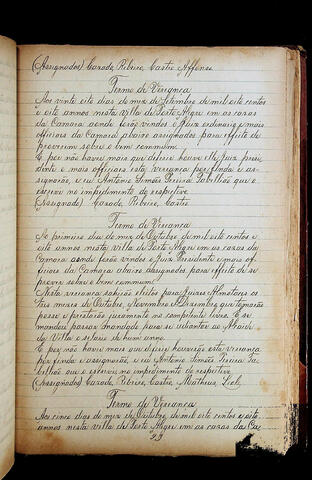 (Assignados) Caroda Ribeiro, Castro, Affonso
Termo de Vereança
Aos vinte oito dias do mez de Setembro de mil oito centos
e oito annos nesta villa de Porto Alegre em as cazas
da Camara aonde forão vindos o Juiz ordinario e mais
officiaes da Camara abaixo assignados para effeito de
proverem sobre o bem commum.
E por não haver mais que diferir houve elle Juiz presi
dente e mais officiaes esta vereança por finda e as-
signarão, e eu Antonio Simões Tabellião que o
escrevi no impedimento do respectivo.
(Assignados) Caroda, Ribeiro, Castro
Termo de Vereança
Ao primeiro dia do mez de Outubro de mil oito centos e
oito annos nesta villa de Porto Alegre em as cazas da
Camara aonde forão vindos o Juiz Presidente e mais of-
ficiaes da Camara abaixo assignados para effeito de se
prover sobre o bem commum
Nesta vereança sahirão eleitos para Juizes Almotaces os
tres mezes de Outubro, Novembro e Dezembro que tomarão
posse e prestarão juramento no competente livro. E se
mandou passar mandado para se
da Villa o
E por não haver mais que diferir houverão esta vereança
por finda e assignarão, e eu Antonio Simões Ta-
bellião que o escrevi no impedimento do respectivo
(Assignados) Caroda, Ribeiro, Castro, Matheus, Leal,
Termo de Vereança
Aos cinco dias do mez de Outubro de mil oito centos e oito
annos nesta villa de Porto Alegre em as cazas da Ca-